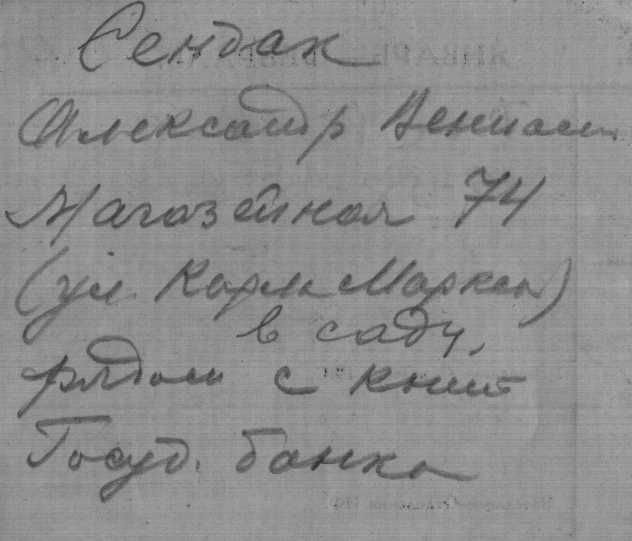 Сендак
Александр Вениам
Магазейная 74
(ул. Карла Маркса)
в саду,
рядом с
Госуд. банка